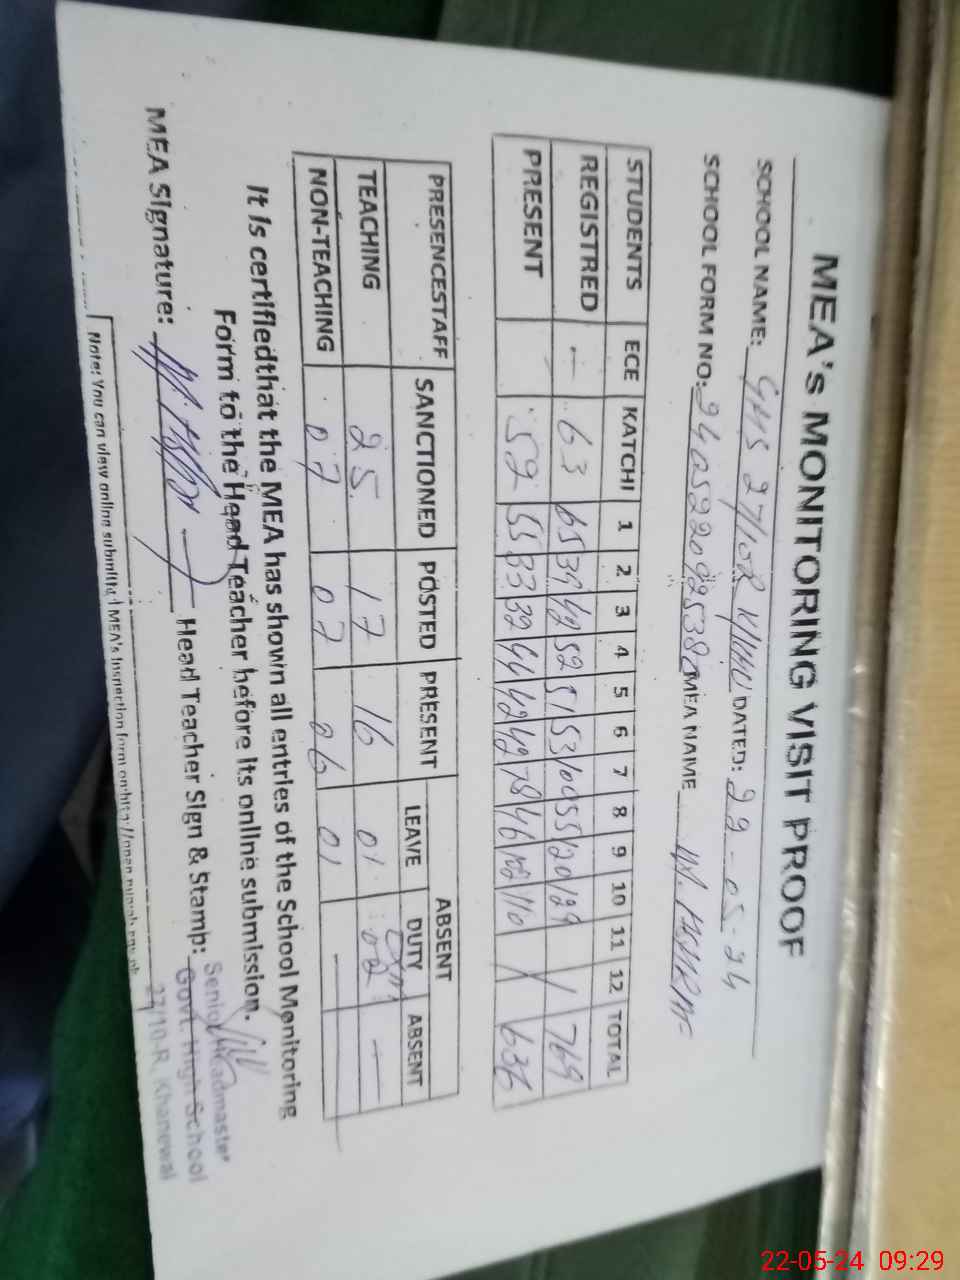 MEA's MONITORING VISIT PROOF
SCHOOL NAME: GHS 27/10R KHW DATED: 22-05-24
SCHOOL FORM NO: MEA NAME
STUDENTS ECE KATCHI 1 2 3 4 5 6 7 8 9 10 11 12 TOTAL
REGISTRED - 63 65 39 42 52 51 53 100 55 120 129 / 769
PRESENT - 52 55 33 32 44 42 42 78 46 102 110 / 636
PRESENCESTAFF SANCTIONED POSTED PRESENT ABSENT
LEAVE DUTY ABSENT
TEACHING 25 17 16 01 02 —
NON-TEACHING 07 07 06 01 —
It is certifiedthat the MEA has shown all entries of the School Monitoring
Form to the Head Teacher before its online submission.
MEA Signature: Head Teacher Sign & Stamp:
Senior Headmaster
Govt. High School
27/10-R, Khanewal
Note: You can view online submitted MEA's Inspection form on:
22-05-24 09:29